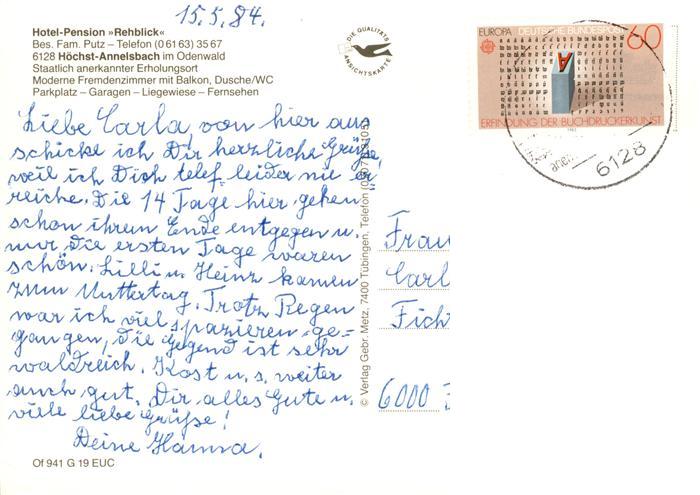 15.5.84.
Hotel-Pension »Rehblick«
Bes. Fam. Putz – Telefon (0 61 63) 35 67
6128 Höchst-Annelsbach im Odenwald
Staatlich anerkannter Erholungsort
Moderne Fremdenzimmer mit Balkon, Dusche/WC
Parkplatz – Garagen – Liegewiese – Fernsehen
DIE QUALITÄTS
ANSICHTSKARTE
EUROPA DEUTSCHE BUNDESPOST 60
A
ERFINDUNG DER BUCHDRUCKERKUNST
1983
6128
Liebe Carla, von hier aus
schicke ich Dir herzliche Grüße,
weil ich Dich telef. leider nie er
reiche. Die 14 Tage hier gehen
schon ihrem Ende entgegen u.
nur die ersten Tage waren
schön. Lilli u. Heinz kamen
zum Muttertag. Trotz Regen
war ich viel spazieren ge=
gangen, die Gegend ist sehr
waldreich. Kost u. s. weiter
auch gut. Dir alles Gute u.
viele liebe Grüße!
Deine Hanna.
© Verlag Gebr. Metz, 7400 Tübingen, Telefon
Frau
Carl
Fich
6000
Of 941 G 19 EUC